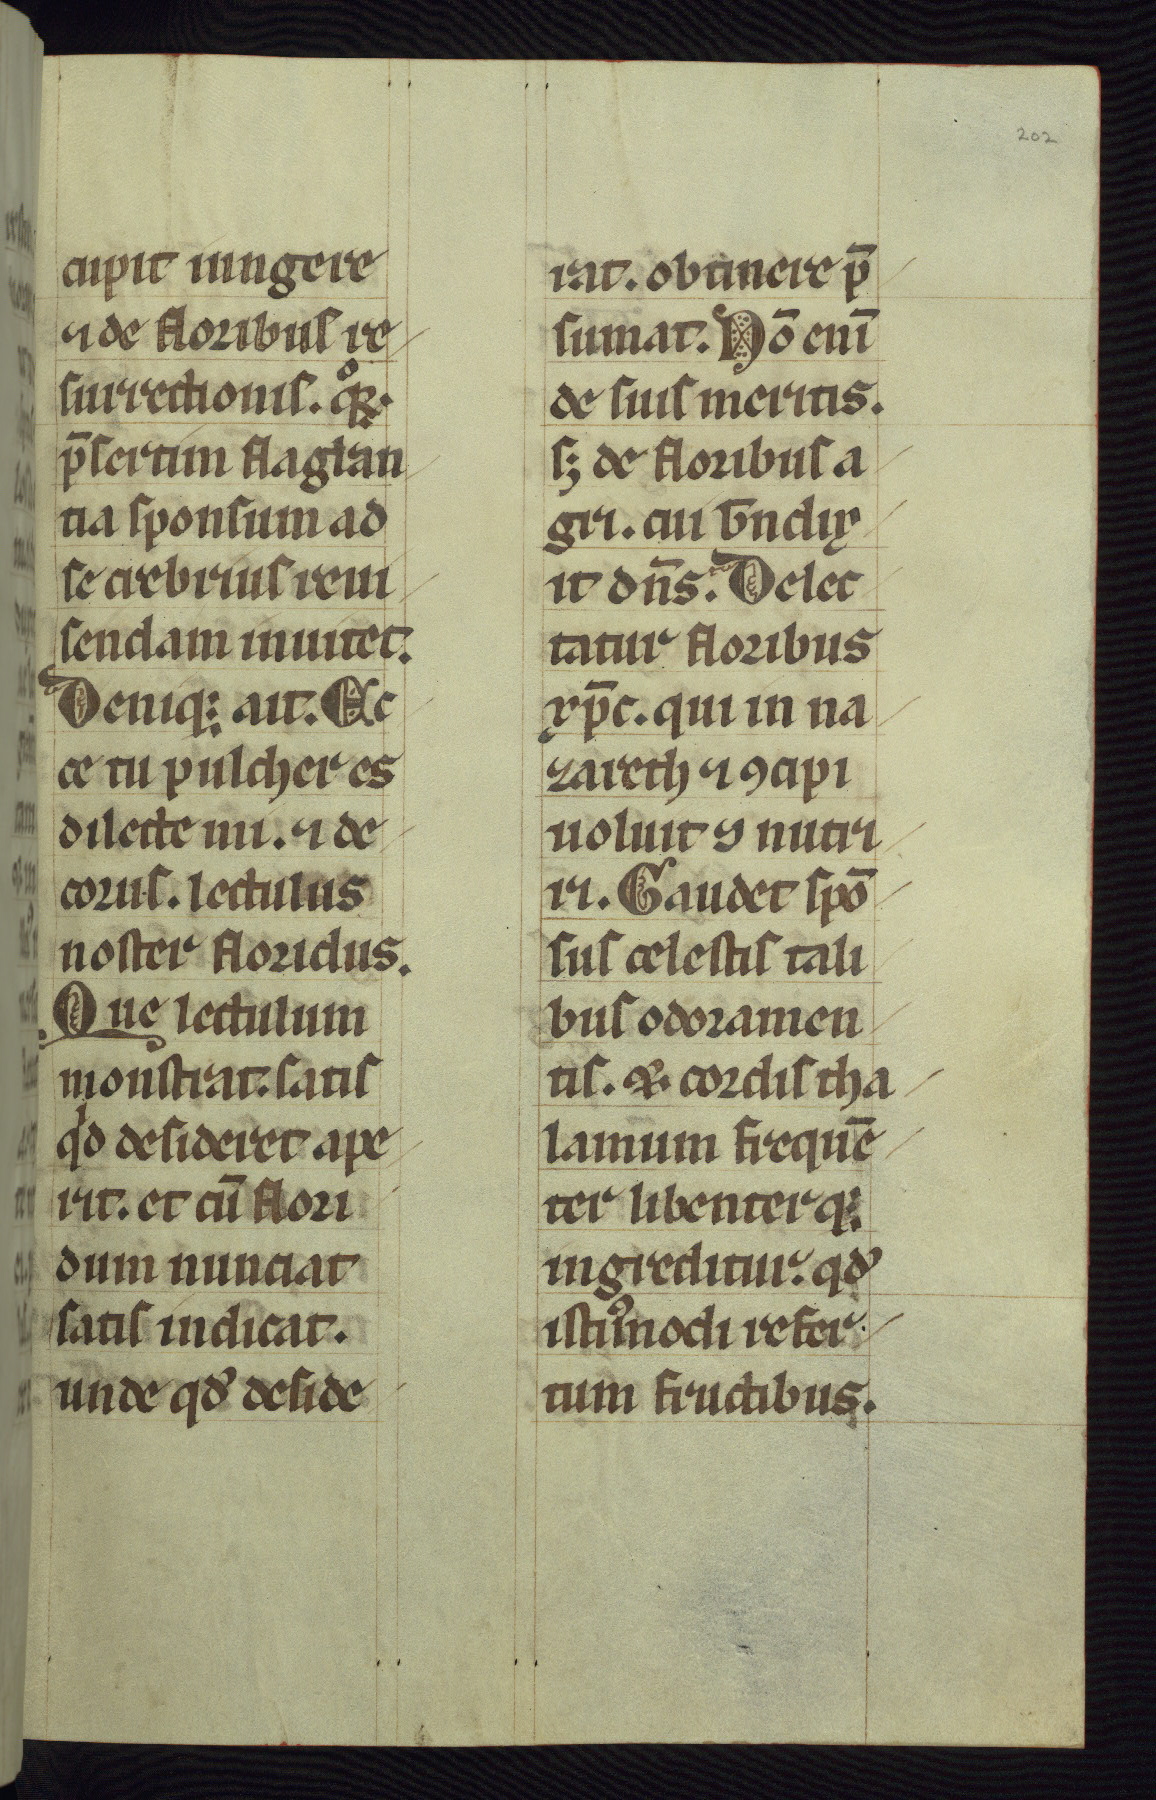 202
cupit iungere
⁊ de floribus re
surrectionis. qͦꝝ.
p̄sertim flagran
tia sponsum ad
se crebrius reui
sendam inuitet.
Deniq; ait. Ec
ce tu pulcher es
dilecte mi. ⁊ de
corus. lectulus
noster floridus.
Que lectulum
monstrat. satis
qd desideret ape
rit. et cū flori
dum nunciat
satis indicat.
unde qd' deside
rat. obtinere p̄
sumat. Nō eni̅
de suis meritis.
sꝫ de floribus a
gri. cui b̅ndix
it dn̄s. Delec
tatur floribus
xp̄c. qui in na
zareth ⁊ ꝯcipi
uoluit ⁊ nutri
ri. Gaudet spō
sus celestis tali
bus odoramen
tis. & cordis tha
lamum frequē
ter libenterq;
ingreditur. qd'
istiꝰmodi refer
tum fructibus.